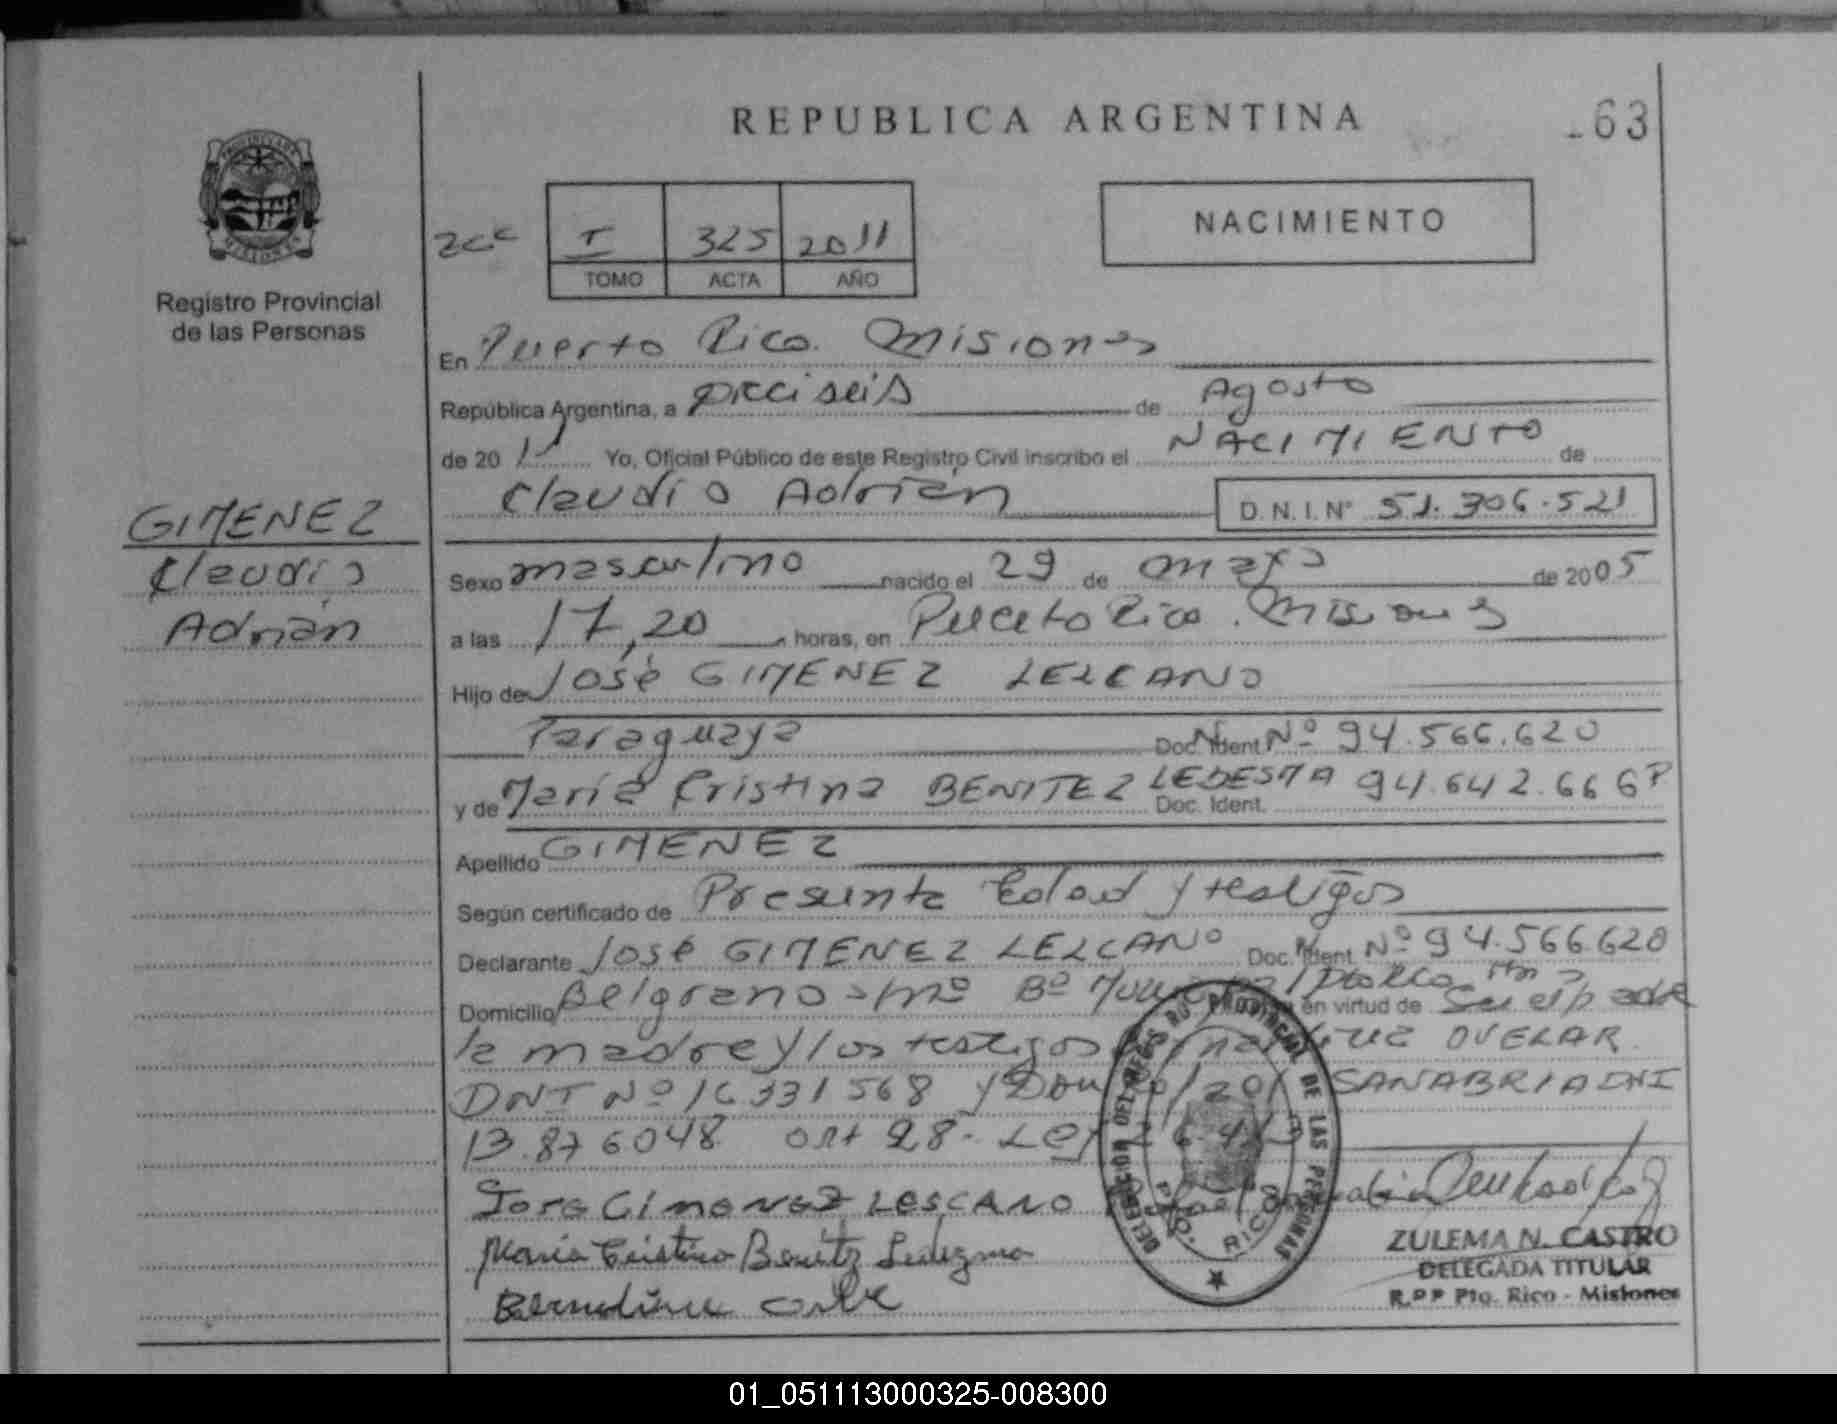 REPUBLICA ARGENTINA
63
I 325 2011
TOMO ACTA AÑO
NACIMIENTO
PROVINCIA DE MISIONES
Registro Provincial
de las Personas
En Puerto Rico. Misiones
República Argentina, a dieciseis de Agosto
de 2011 Yo, Oficial Público de este Registro Civil inscribo el NACIMIENTO de
Claudio Adrián D.N.I.Nº 51.306.521
GIMENEZ
Claudio
Adrián
Sexo masculino nacido el 29 de mayo de 2005
a las 17,20 horas, en Puerto Rico. Misiones
Hijo de José GIMENEZ LEZCANO
Paraguaya Doc. Ident. Nº 94.566.620
y de María Cristina BENITEZ LEDESMA Doc. Ident. 94.642.666
Apellido GIMENEZ
Según certificado de Presunta Edad y testigos
Declarante José GIMENEZ LEZCANO Doc. Ident. Nº 94.566.620
Domicilio Belgrano Bº en virtud de
la madre y los testigos OVELAR
DNI Nº 16331568 y SANABRIA DNI
13.876048 art 28. Ley
Jose Gimenez LESCANO
Maria Cristina Benitez Ledezma
DELEGACION DEL REGISTRO PROVINCIAL DE LAS PERSONAS
PTO. RICO
ZULEMA N. CASTRO
DELEGADA TITULAR
R.P.P Pto. Rico - Misiones
01_051113000325-008300